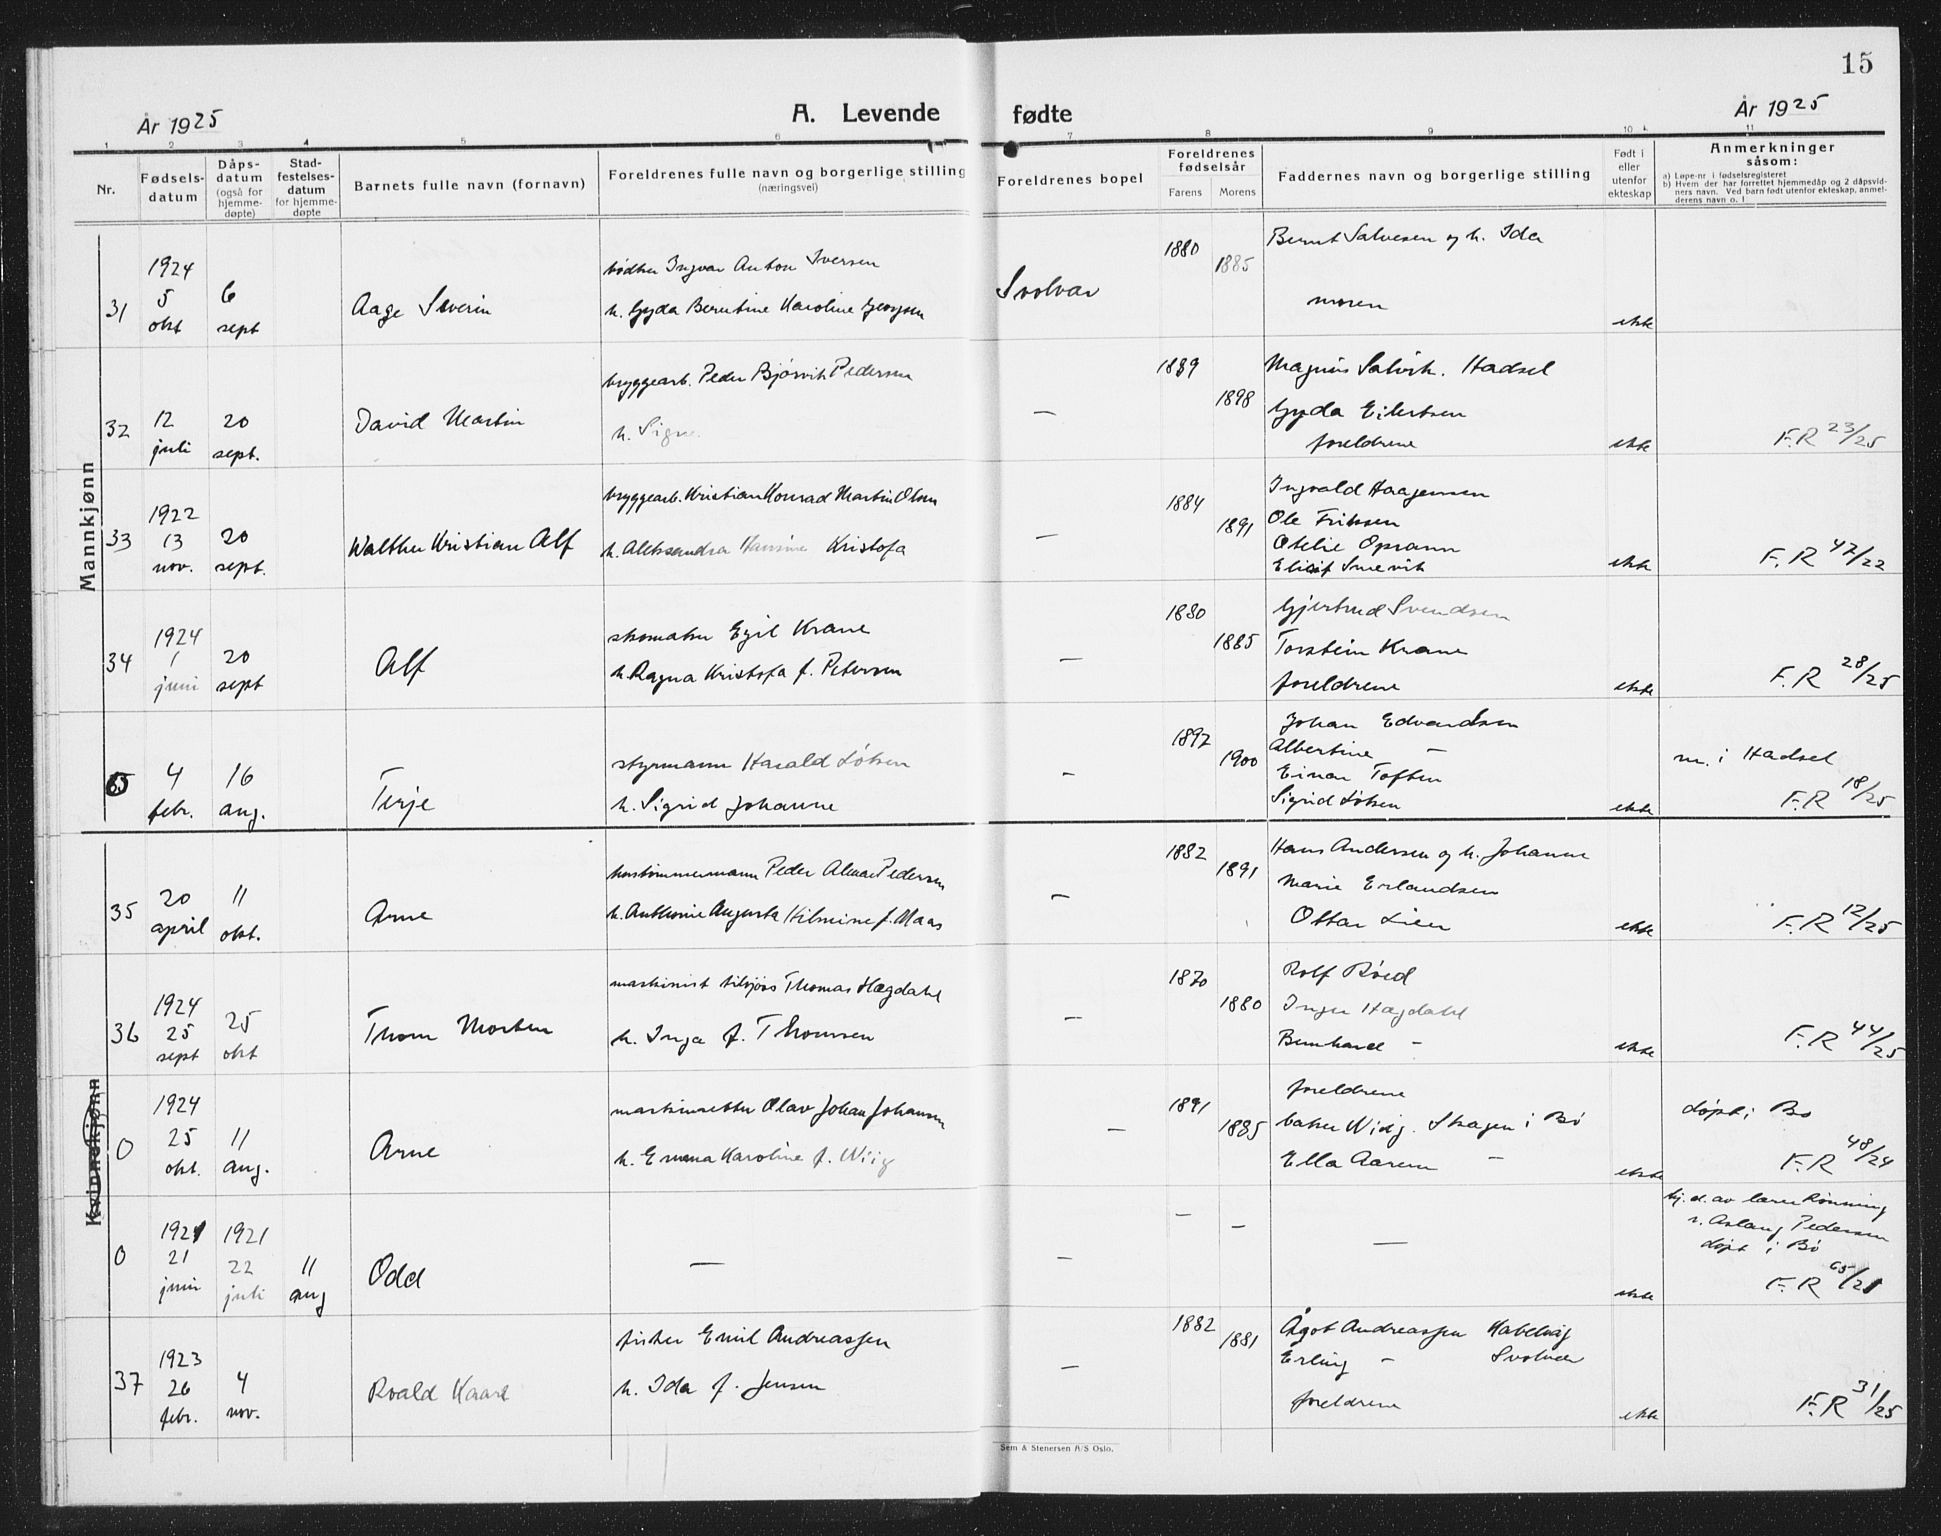 15
År 1925
A. Levende fødte
År 1925
1 2 3 4 5 6 7 8 9 10 11
Nr.
Fødsels-
datum
Dåps-
datum
(også for
hjemme-
døpte)
Stad-
festelses-
datum
for hjemme-
døpte
Barnets fulle navn (fornavn)
Foreldrenes fulle navn og borgerlige stilling
(næringsvei)
Foreldrenes bopel
Foreldrenes
fødselsår
Farens Morens
Faddernes navn og borgerlige stilling
Født i
eller
utenfor
ekteskap
Anmerkninger
såsom:
a) Løpe-nr i fødselsregisteret
b) Hvem der har forrettet hjemmedåp og 2 dåpsvid-
ners navn. Ved barn født utenfor ekteskap, anmel-
derens navn o. l
Mannkjønn
31
1924
5
okt
6
sept
Aage Severin
Ingvar Anton Iversen
h. Gyda Berntine Karoline
Svolvær
1880
1885
Bernt Salvesen og h. Ida
moren
ekte
32
12
juli
20
sept.
David Martin
bryggearb. Peder Bjørvik Pedersen
h. Signe
—
1889
1898
Magnus Hadsel
Gyda Eilertsen
foreldrene
ekte
F.R 23/25
33
1922
13
nov.
20
sept.
Walther Kristian Alf
bryggearb. Kristian Konrad Martin Olsen
h. Aleksandra Hansine Kristofa
—
1884
1891
Ingvald Haagensen
Ole
Otelie
ekte
F.R 47/22
34
1924
1
juni
20
sept
Alf
skomaker Egil Krane
h. Ragna Kristofa f. Petersen
—
1880
1885
Gjertrud Svendsen
Torstein Krane
foreldrene
ekte
F.R 28/25
4
febr.
16
aug.
Terje
styrmann Harald Løksen
h. Sigrid Johanne
—
1892
1900
Johan Edvardsen
Albertine —
Einar Toften
Sigrid Løksen
ekte
m. i Hadsel
F.R 18/25
35
20
april
11
okt.
Arne
Peder Pedersen
h. Anthonie Augusta f. Maas
—
1882
1891
Hans Andersen og h. Johanne
Marie Erlandsen
Ottar Lien
ekte
F.R 12/25
36
1924
25
sept
25
okt
Thom Morten
maskinist tilsjøs Thomas Hegdahl
h. Inga f. Thomsen
—
1870
1880
Rolf
Inger Hegdahl
Bernhard —
ekte
F.R 44/25
Kvinnekjønn
0
1924
25
okt.
11
aug.
Arne
Olav Johan Johansen
h. Emma Karoline f. Wiig
—
1891
1885
foreldrene
baker Skagen i Bø
Ella —
ekte
døpt i Bø
F.R 48/24
0
1921
21
juni
1921
22
juli
11
aug
Odd
—
—
— —
—
ekte
hj. d. av lærer Rønning
v. Aslaug Pedersen
døpt i Bø
F.R 65/21
37
1923
26
febr.
4
nov.
Roald Kaare
fisker Emil Andreassen
h. Ida f. Jensen
—
1882
1881
Ågot Andreassen Kabelvåg
Erling — Svolvær
foreldrene
ekte
F.R 31/25
Sem & Stenersen A/S Oslo.